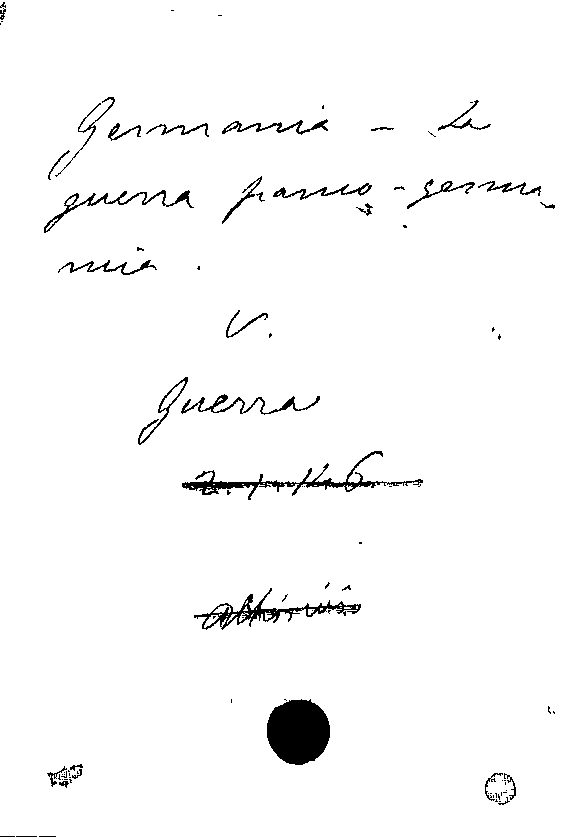 Germania - La
guerra franco-germa-
nia.
V.
Guerra